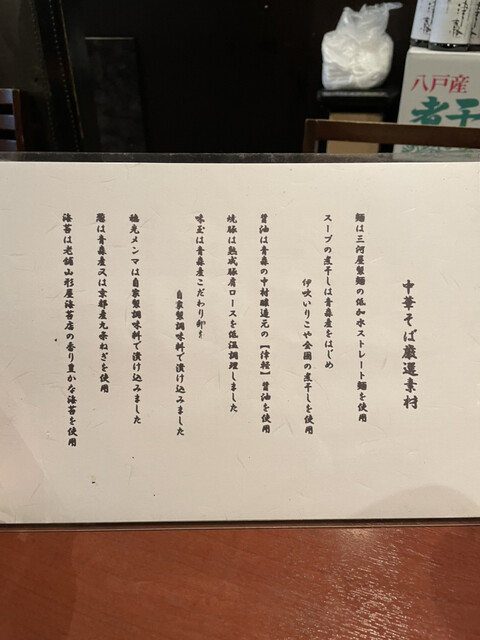 中華そば厳選素材
麺は三河屋製麺の低加水ストレート麺を使用
スープの煮干しは青森産をはじめ
伊吹いりこや全国の煮干しを使用
醤油は青森の中村醸造元の【津軽】醤油を使用
焼豚は熟成豚肩ロースを低温調理しました
味玉は青森産こだわり卵を
自家製調味料で漬け込みました
穂先メンマは自家製調味料で漬け込みました
葱は青森産又は京都産九条ねぎを使用
海苔は老舗山形屋海苔店の香り豊かな海苔を使用
八戸産
煮干